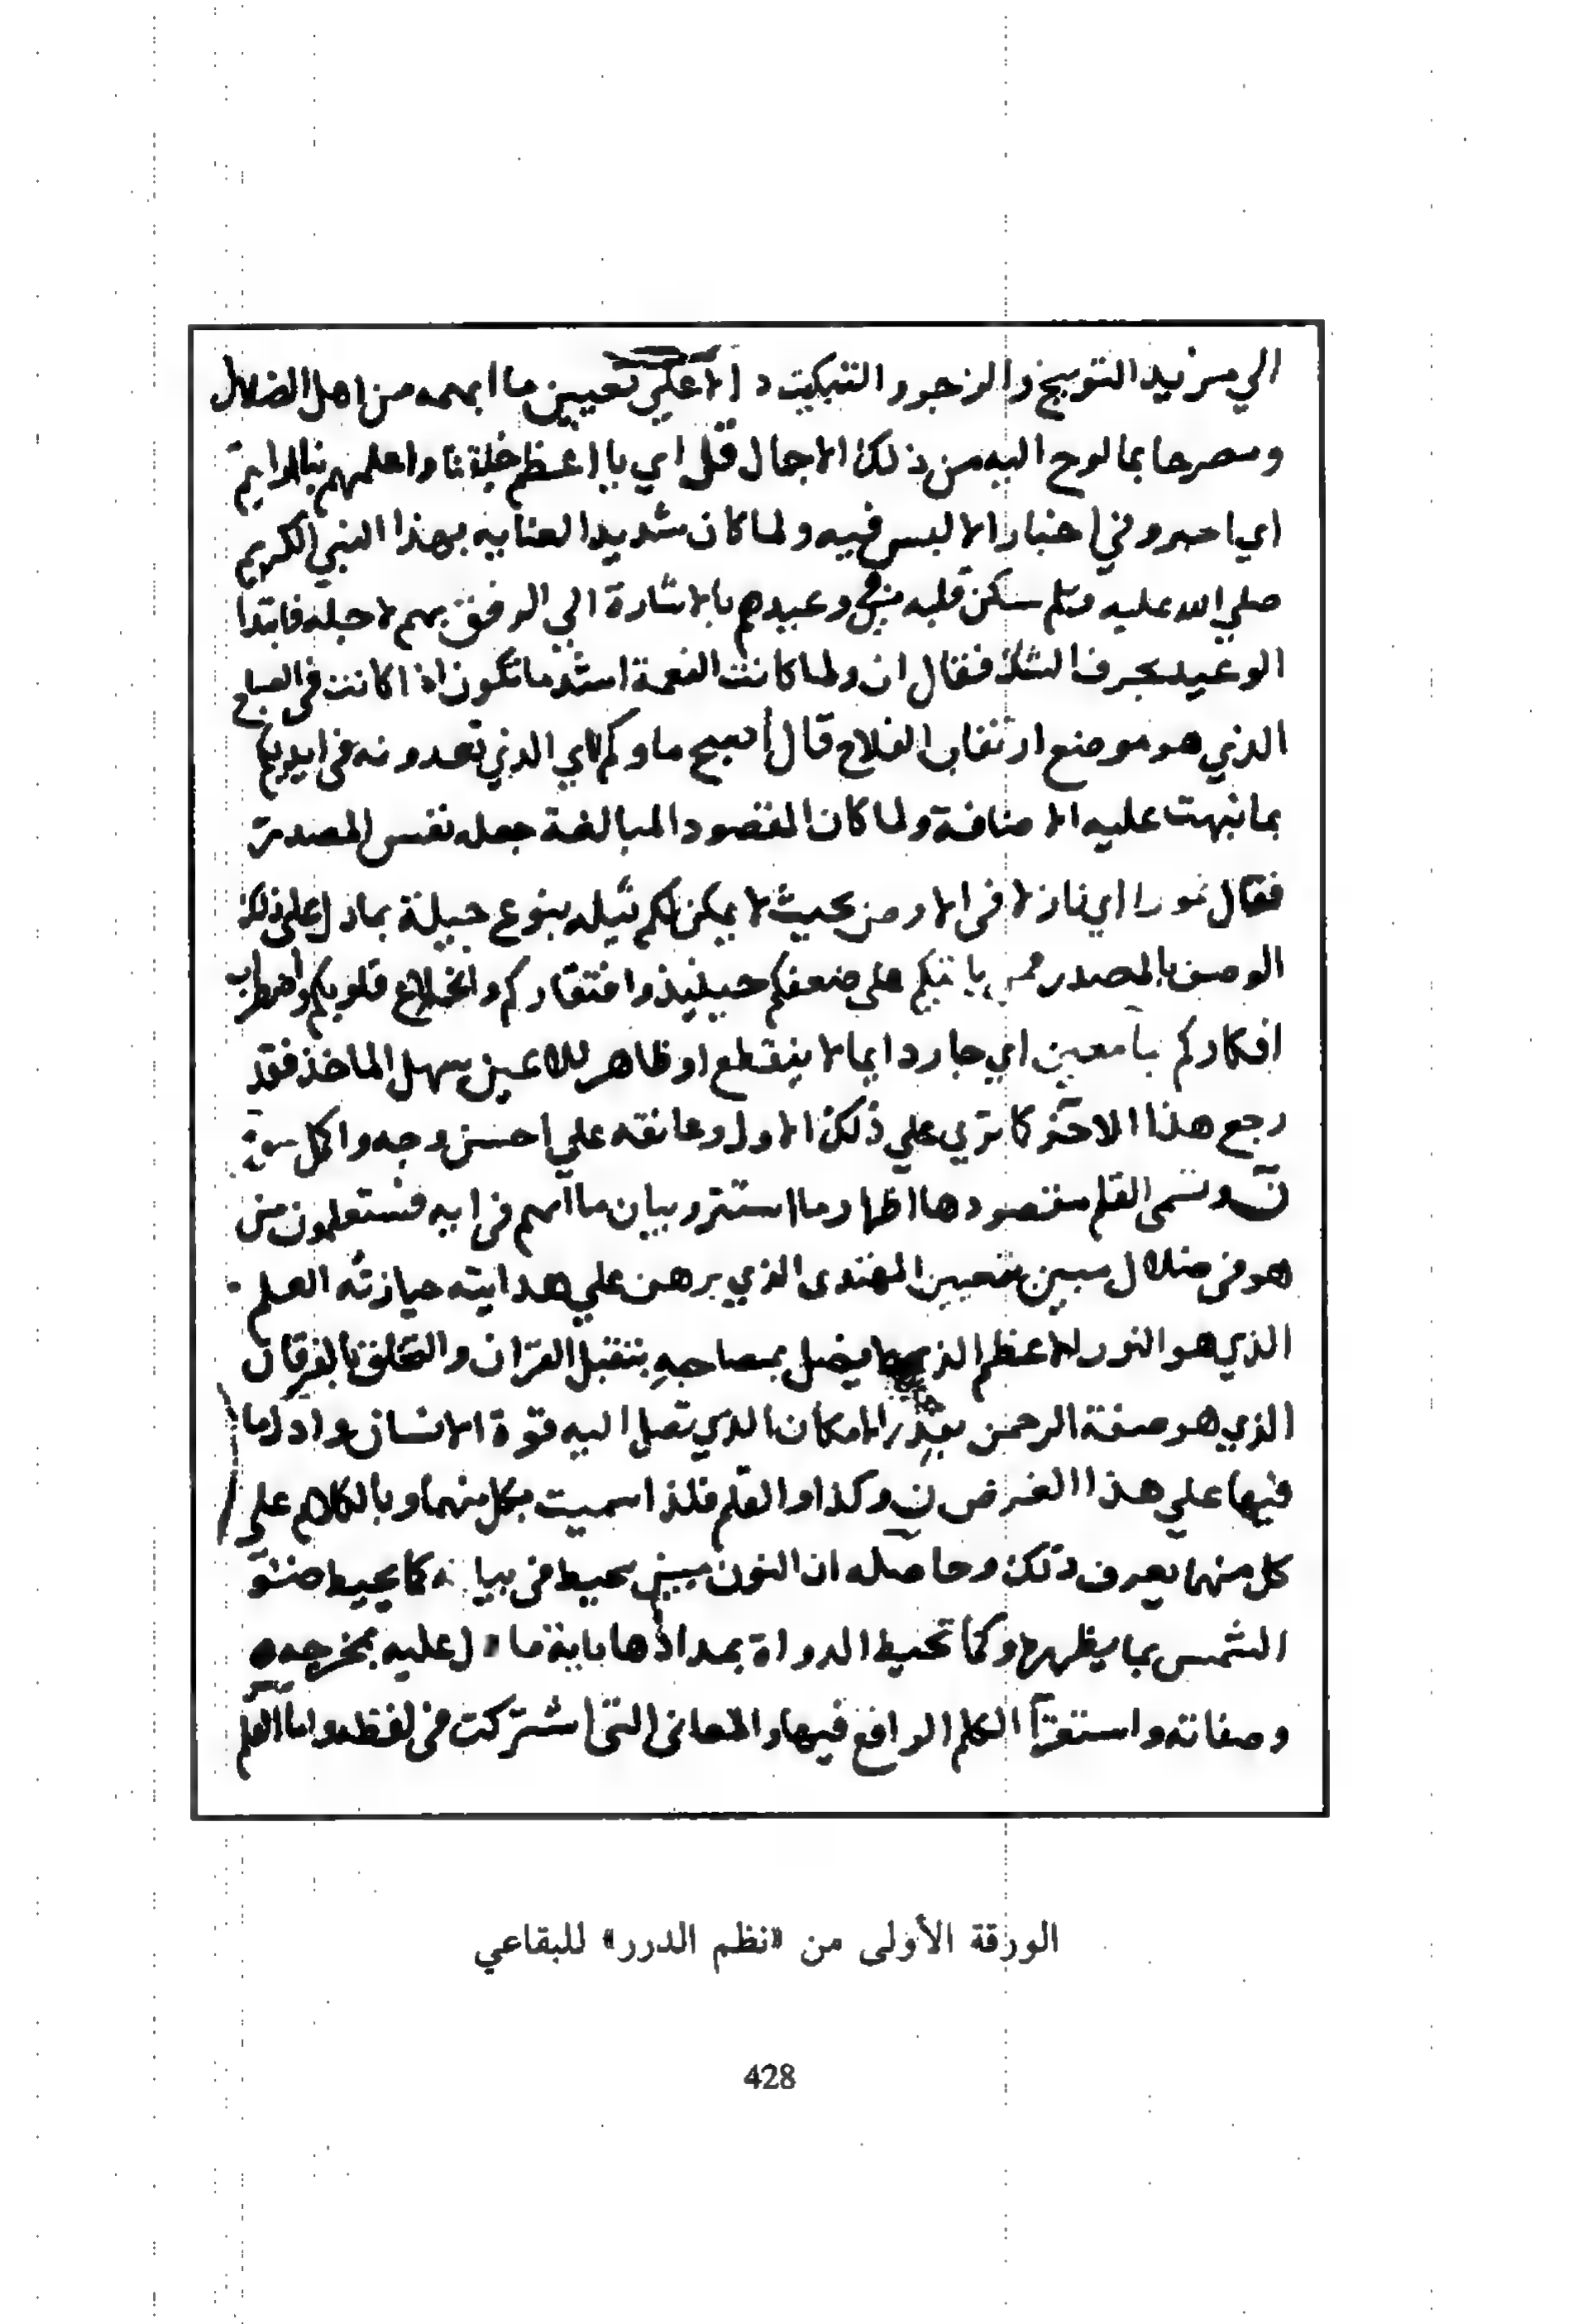 الي مزيد التوبيخ والزجر والتبكيت دالا علي تعيين ما ابهمه من اهل الضلال
ومصرحا بما لوح اليه من ذلك الاجمال قل اي يا اعظم خلقنا واعلمهم بنا ارايتم
اي اخبروني اخبارا لا لبس فيه ولما كان شديد العنايه بهذا النبي الكريم
صلي الله عليه وسلم سكن قلبه في وعيدهم بالاشارة الي الرفق بهم لاجله فابتدا
الوعيد بحرف الشك فقال ان ولما كانت النعمة اشد ما تكون اذا كانت في الصباح
الذي هو موضع ارتقاب الفلاح قال اصبح ماوكم اي الذي تعدونه في ايديكم
بما نبهت عليه الاضافة ولما كان المقصود المبالغة جعله نفس المصدر
فقال غورا اي نازلا في الارض بحيث لا يمكن لكم نيله بنوع حيلة بما دل علي ذلك
الوصف بالمصدر فمن ياتيكم علي ضعفكم حينيذ وافتقاركم وانخلاع قلوبكم واضطراب
افكاركم بما معين اي جار دايما لا ينقطع او ظاهر للاعين سهل الماخذ فقد
رجع هذا الاخر كما تري علي ذلك الاول وعانقه علي احسن وجه واكمل
ن وتسمى القلم مقصودها اظهار ما استتر وبيان ما ابهم في ايه فستعلمون من
هو في ضلال مبين بتعيين المهتدى الذي برهن علي هدايته حيازته العلم
الذي هو النور الاعظم الذي لا يضل بمصاحبه بتقبل القران والتخلق بالفرقان
الذي هو صفة الرحمن بقدر الامكان الذي تصل اليه قوة الانسان وادل ما
فيها علي هذا الغرض ن وكذا والقلم فلذا سميت بكل منهما وبالكلام علي
كل منهما يعرف ذلك وحاصله ان النون مبين محيط في بيانه كما يحيط ضوء
الشمس بما يظهره وكما تحيط الدواة بمدادها باية ما دل عليه بمخرجه
وصفاته واستقرا الكلم الواقع فيها والمعاني التي اشتركت في لفظه واما القلم
الورقة الأولى من «نظم الدرر» للبقاعي
428